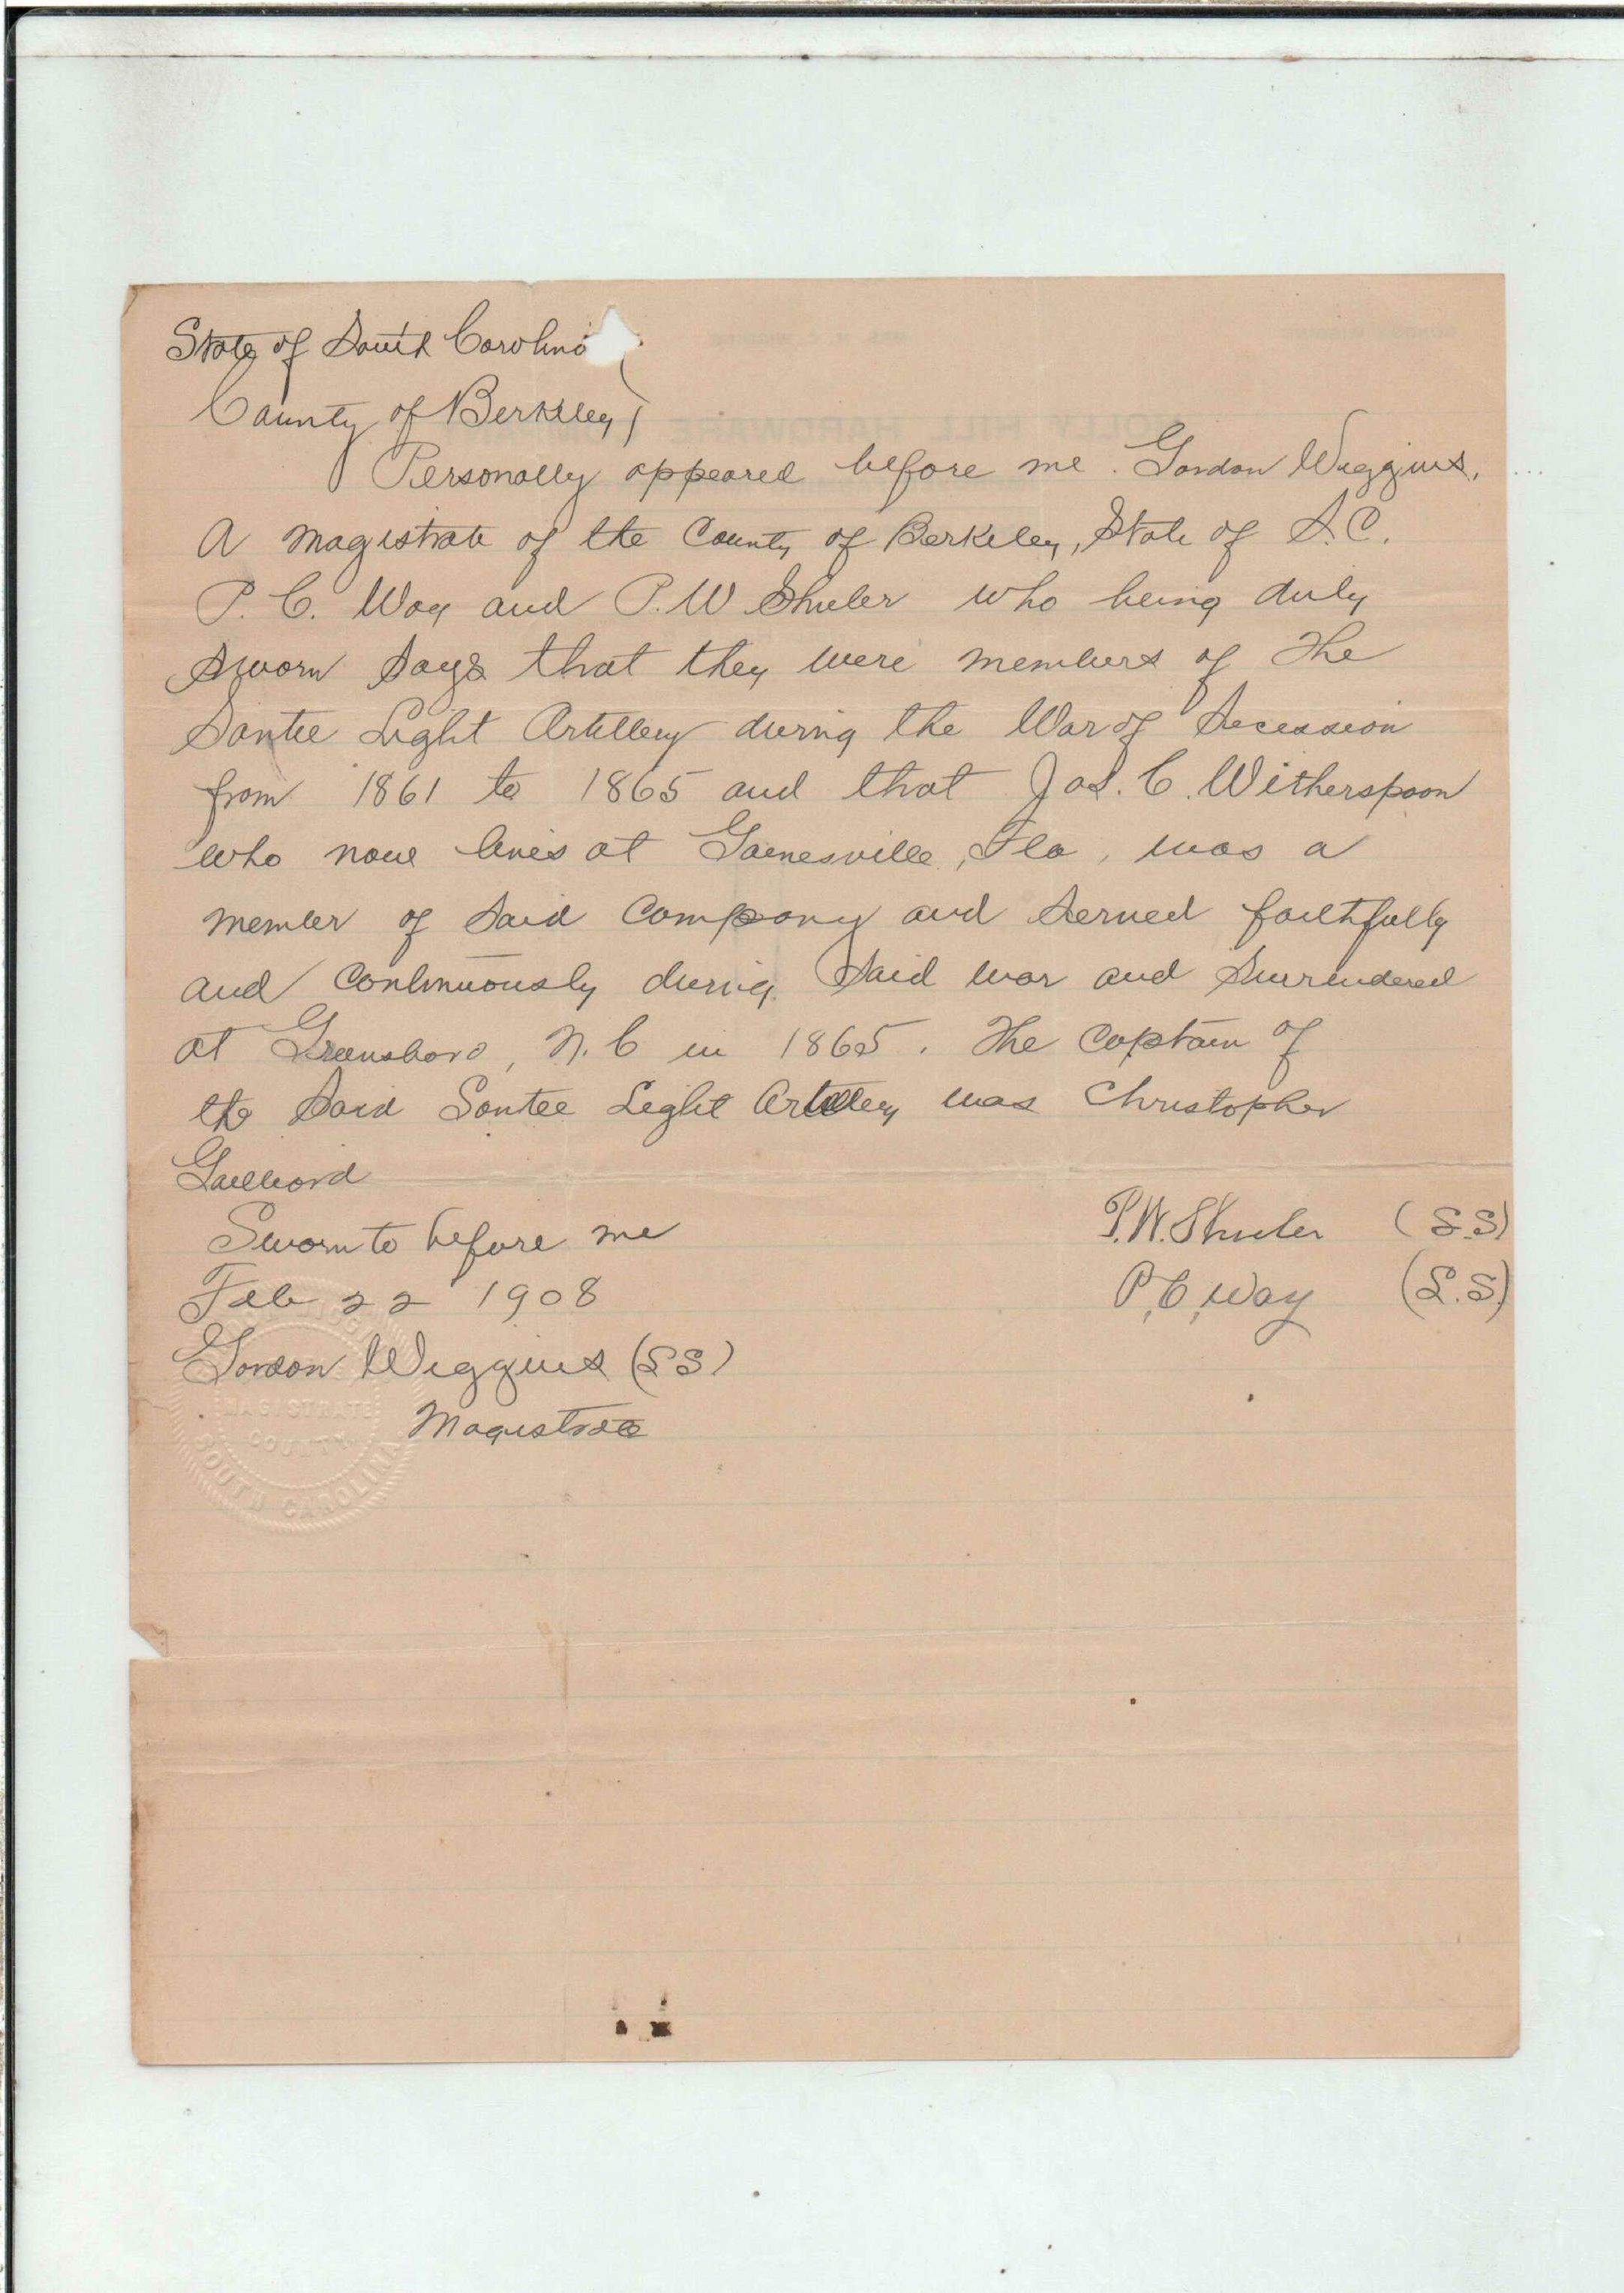 State of South Carolina
County of Berkeley
Personally appeared before me. Gordon Wiggins,
A magistrate of the County of Berkeley, State of S.C.
P. C. Way and P. W Shuler who being duly
Sworn Says that they were members of The
Santee Light Artillery during the War of Secession
from 1861 to 1865 and that Jas. C. Witherspoon
who now lives at Gainesville, Fla, was a
member of Said Company and Served faithfully
and Continuously during Said war and Surrendered
at Greensboro, N. C in 1865. The Captain of
the Said Santee Light Artillery was Christopher
Gailliard
Sworn to before me
P. W. Shuler (S.S)
Feb 22 1908
P. C. Way (L.S.)
Gordon Wiggins (SS)
Magistrate
MAGISTRATE
COUNTY
SOUTH CAROLINA